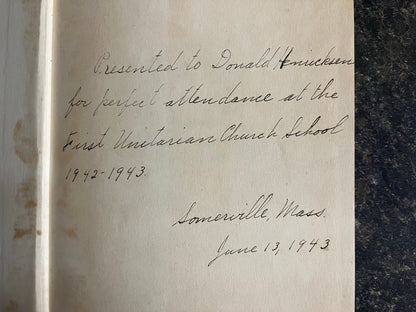 Presented to Donald Henricksen
for perfect attendance at the
First Unitarian Church School
1942-1943.
Somerville, Mass.
June 13, 1943.